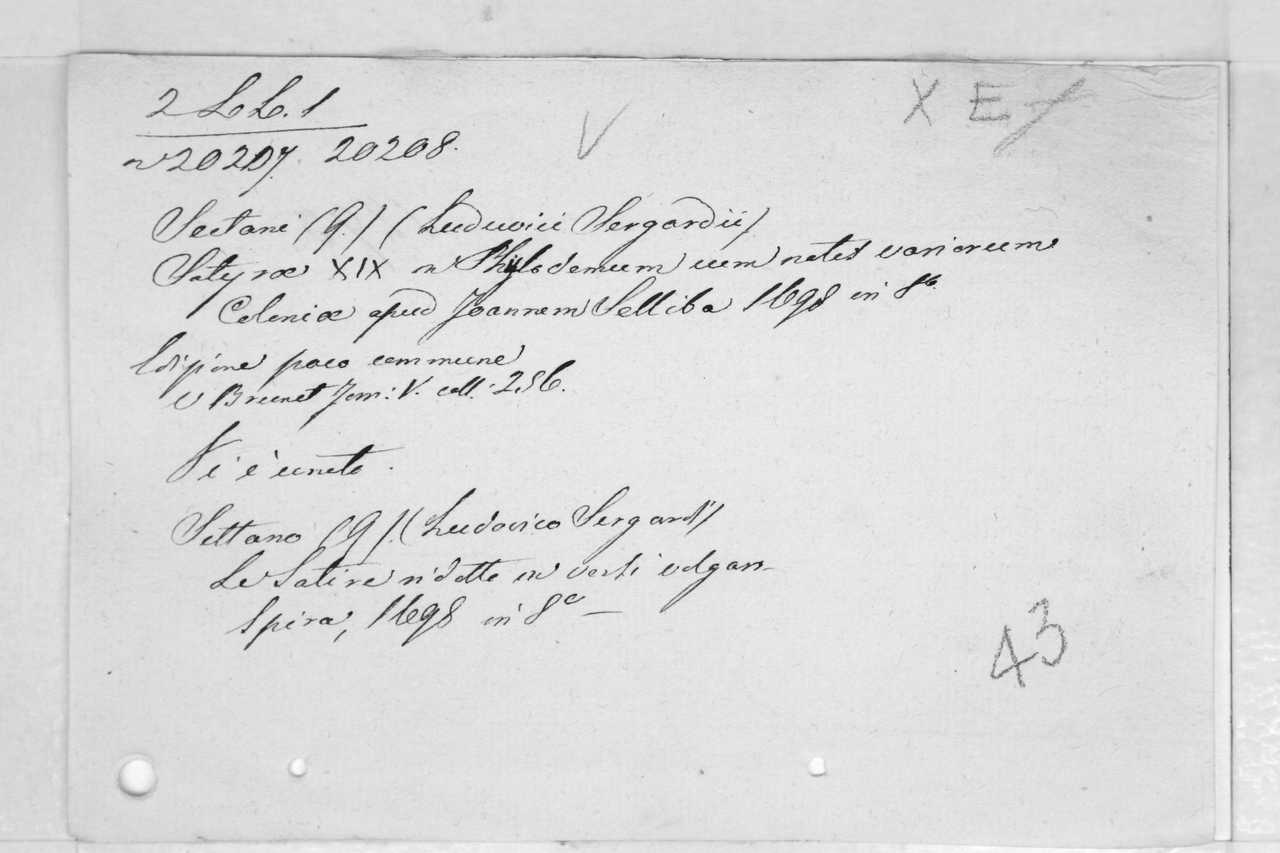 2 LL. 1
V
X E
n 20207. 20208.
Sectani (Q.) (Luduvici Sergardii)
Satyræ XIX in Phylodemum cum notis variorum
Coloniæ apud Joannem Selliba 1698 in 8º
Edizione poco commune
V Brunet Tom: V. coll: 256.
Vi è unito.
Settano (Q.) (Ludovico Sergardi)
Le Satire ridotte in versi volgari
Spira, 1698 in 8º
43